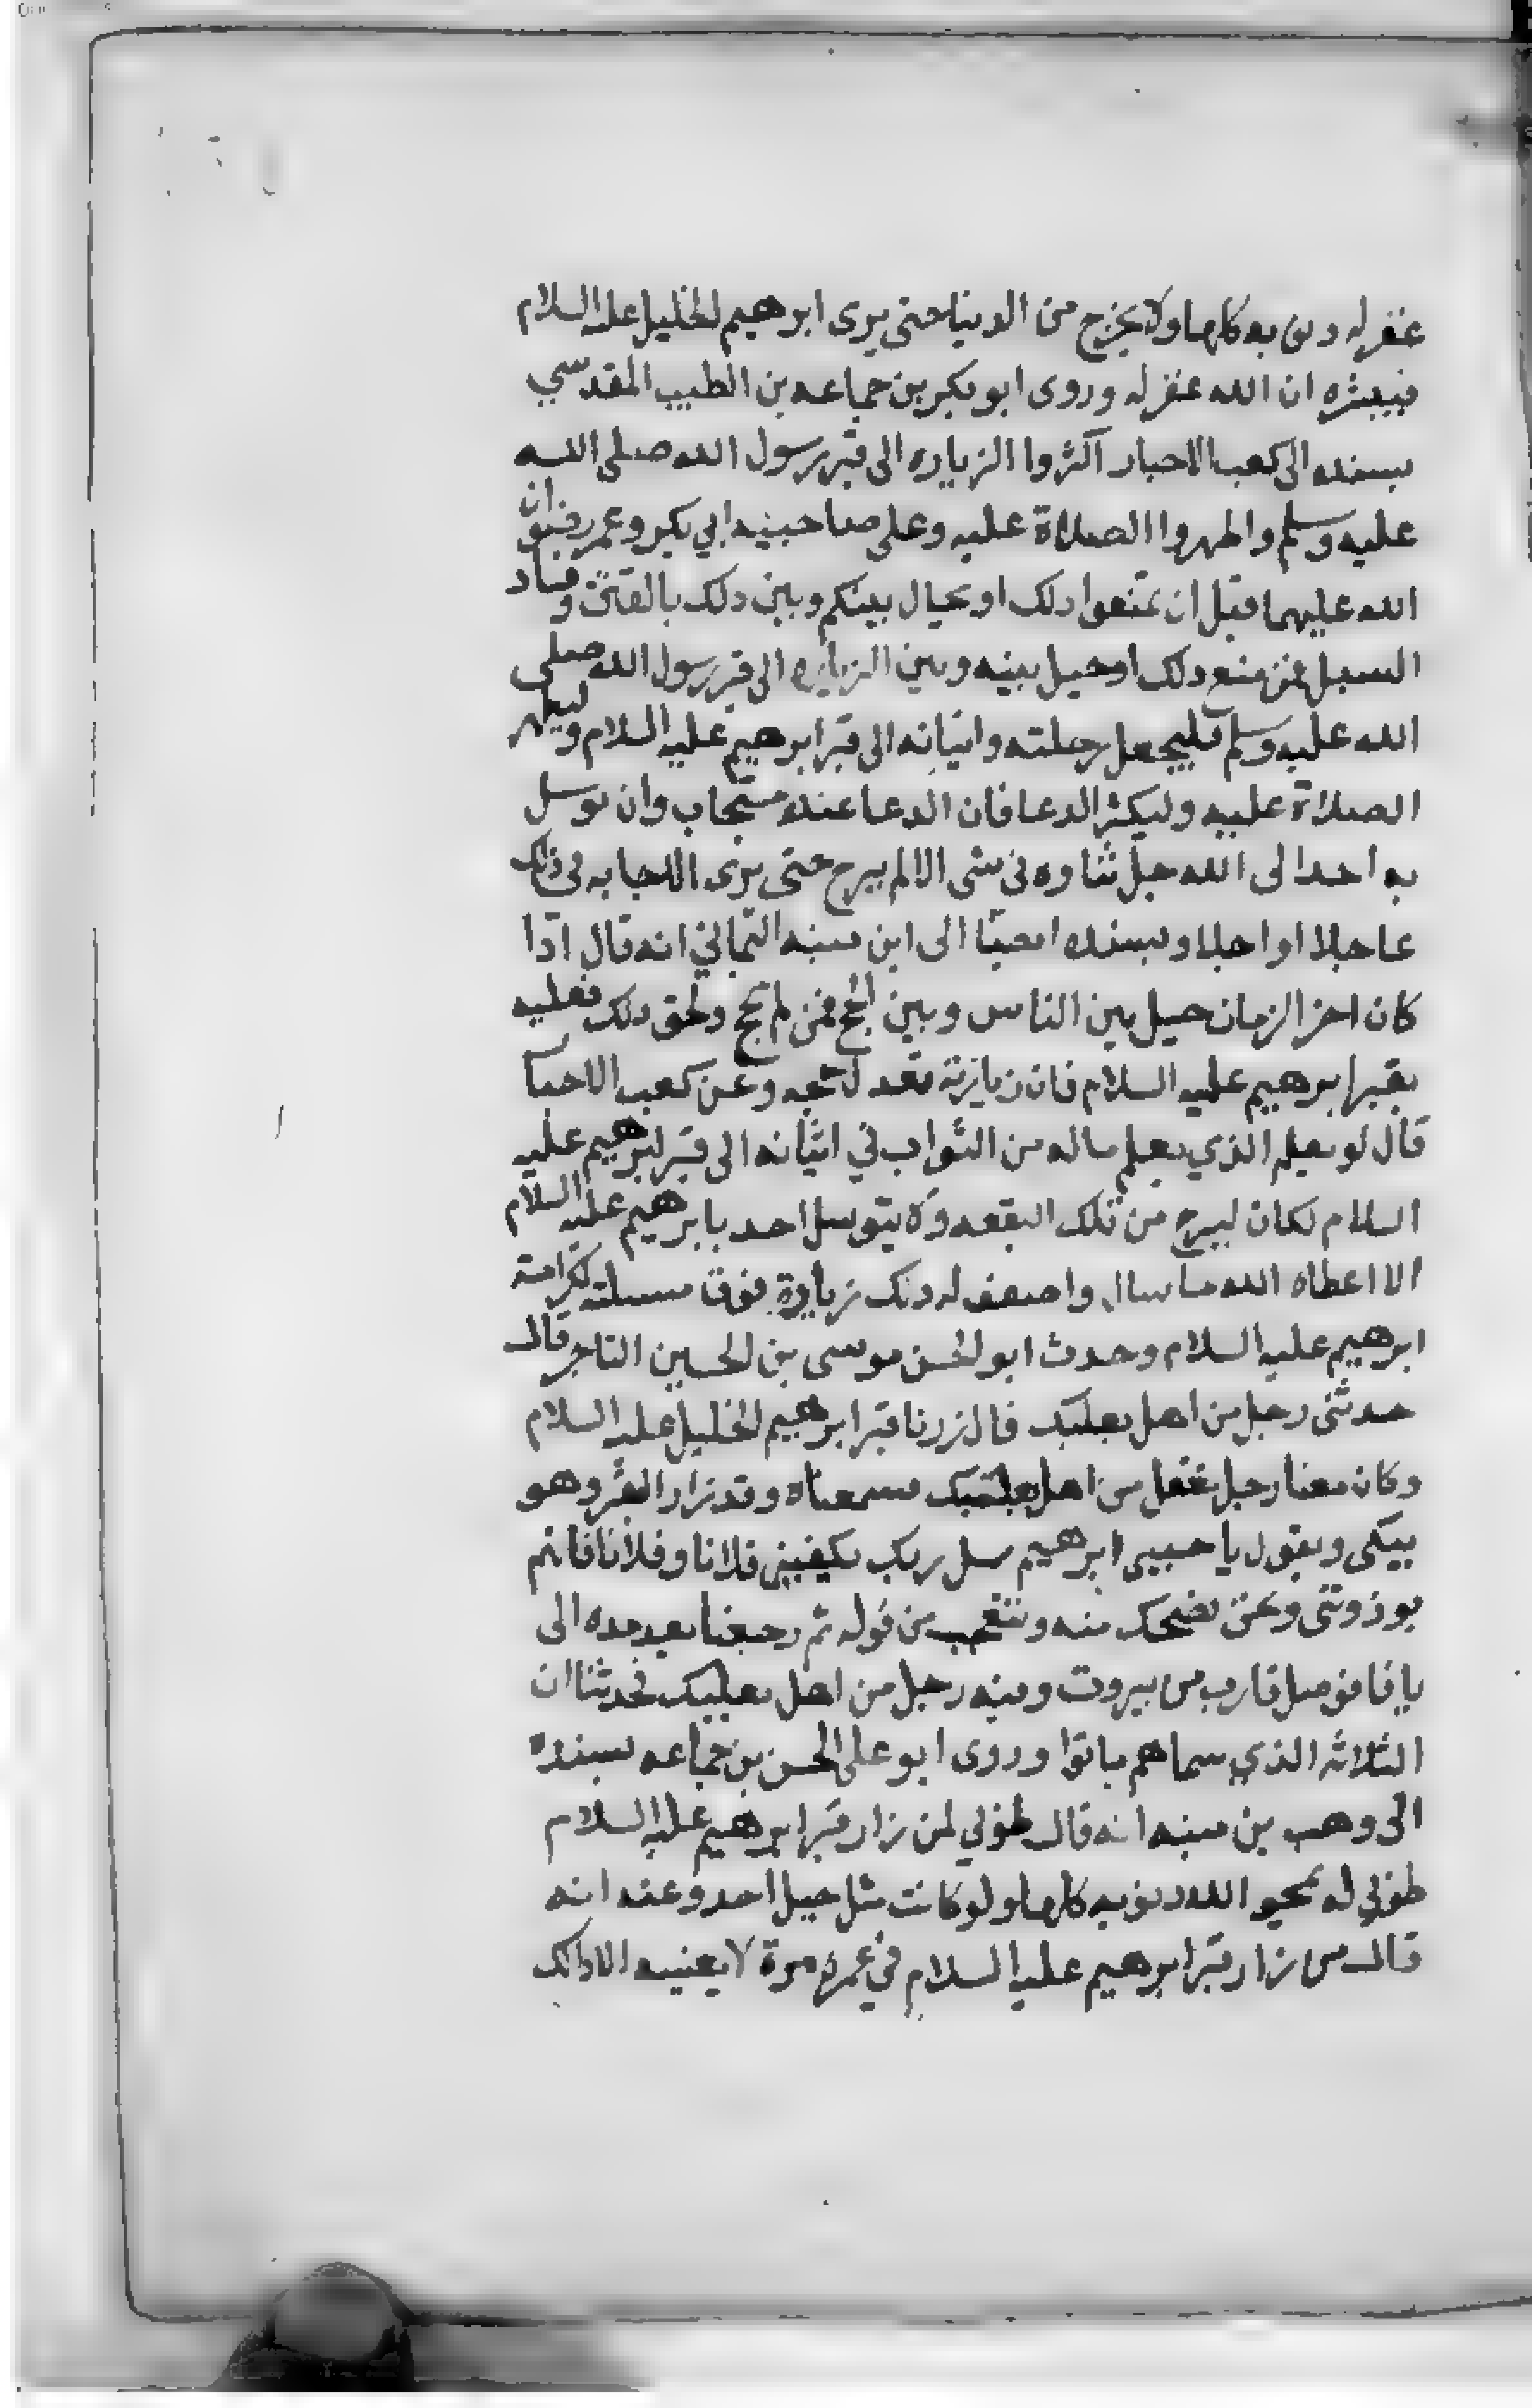 غفر له ذنوبه كلها ولا يخرج من الدنيا حتى يرى ابرهيم الخليل عليه السلام
فيبشره ان الله غفر له وروى ابو بكر بن جماعه بن الطبيب المقدسي
بسنده الى كعب الاحبار اكثروا الزياره الى قبر رسول الله صلى الله
عليه وسلم واظهروا الصلاة عليه وعلى صاحبيه ابي بكر وعمر رضوان
الله عليهما قبل ان تمنعوا ذلك او يحال بينكم وبين ذلك بالفتن وفساد
السبل فمن منع ذلك او حيل بينه وبين الزياره الى قبر رسول الله صلى
الله عليه وسلم فليجعل رحلته واتيانه الى قبر ابرهيم عليه السلام وليظهر
الصلاة عليه وليكثر الدعا فان الدعا عنده مستجاب وان توسل
به احد الى الله جل ثناوه في شى الا لم يبرح حتى يرى الاجابه في ذلك
عاجلا او اجلا وبسنده ايضا الى ابن منبه اليماني انه قال اذا
كان اخر الزمان حيل بين الناس وبين الحج فمن لم يحج ولحق ذلك فعليه
بقبر ابرهيم عليه السلام فان زيارته تعدل حجه وعن كعب الاحبا
قال لو يعلم الذي يعلم ماله من الثواب في اتيانه الى قبر ابرهيم عليه
السلام لكان ليبرح من تلك البقعه ولا يتوسل احد بابرهيم عليه السلام
الا اعطاه الله ما سال واضعف له ذلك زيادة فوق مسلته لكرامة
ابرهيم عليه السلام وحدث ابو الحسن موسى بن الحسين التاجر قال
حدثنى رجل من اهل بعلبك قال زرنا قبر ابرهيم الخليل عليه السلام
وكان معنا رجل مغفل من اهل بعلبك فسمعناه وقد زار القبر وهو
يبكى ويقول يا حبيبي ابرهيم سل ربك يكفيني فلانا وفلانا فانهم
يوذوننى ونحن نضحك منه ونتعجب من قوله ثم رجعنا بعد مده الى
يافا فوصل قارب من بيروت وفيه رجل من اهل بعلبك فحدثنا ان
الثلاثه الذي سماهم ماتوا وروى ابو على الحسن بن جماعه بسنده
الى وهب بن منبه انه قال طوبي لمن زار قبر ابرهيم عليه السلام
طوبي له يمحو الله ذنوبه كلها ولو كانت مثل جبل احد وعنه انه
قال من زار قبر ابرهيم عليه السلام في عمره مرة لا يعنيه الا ذلك